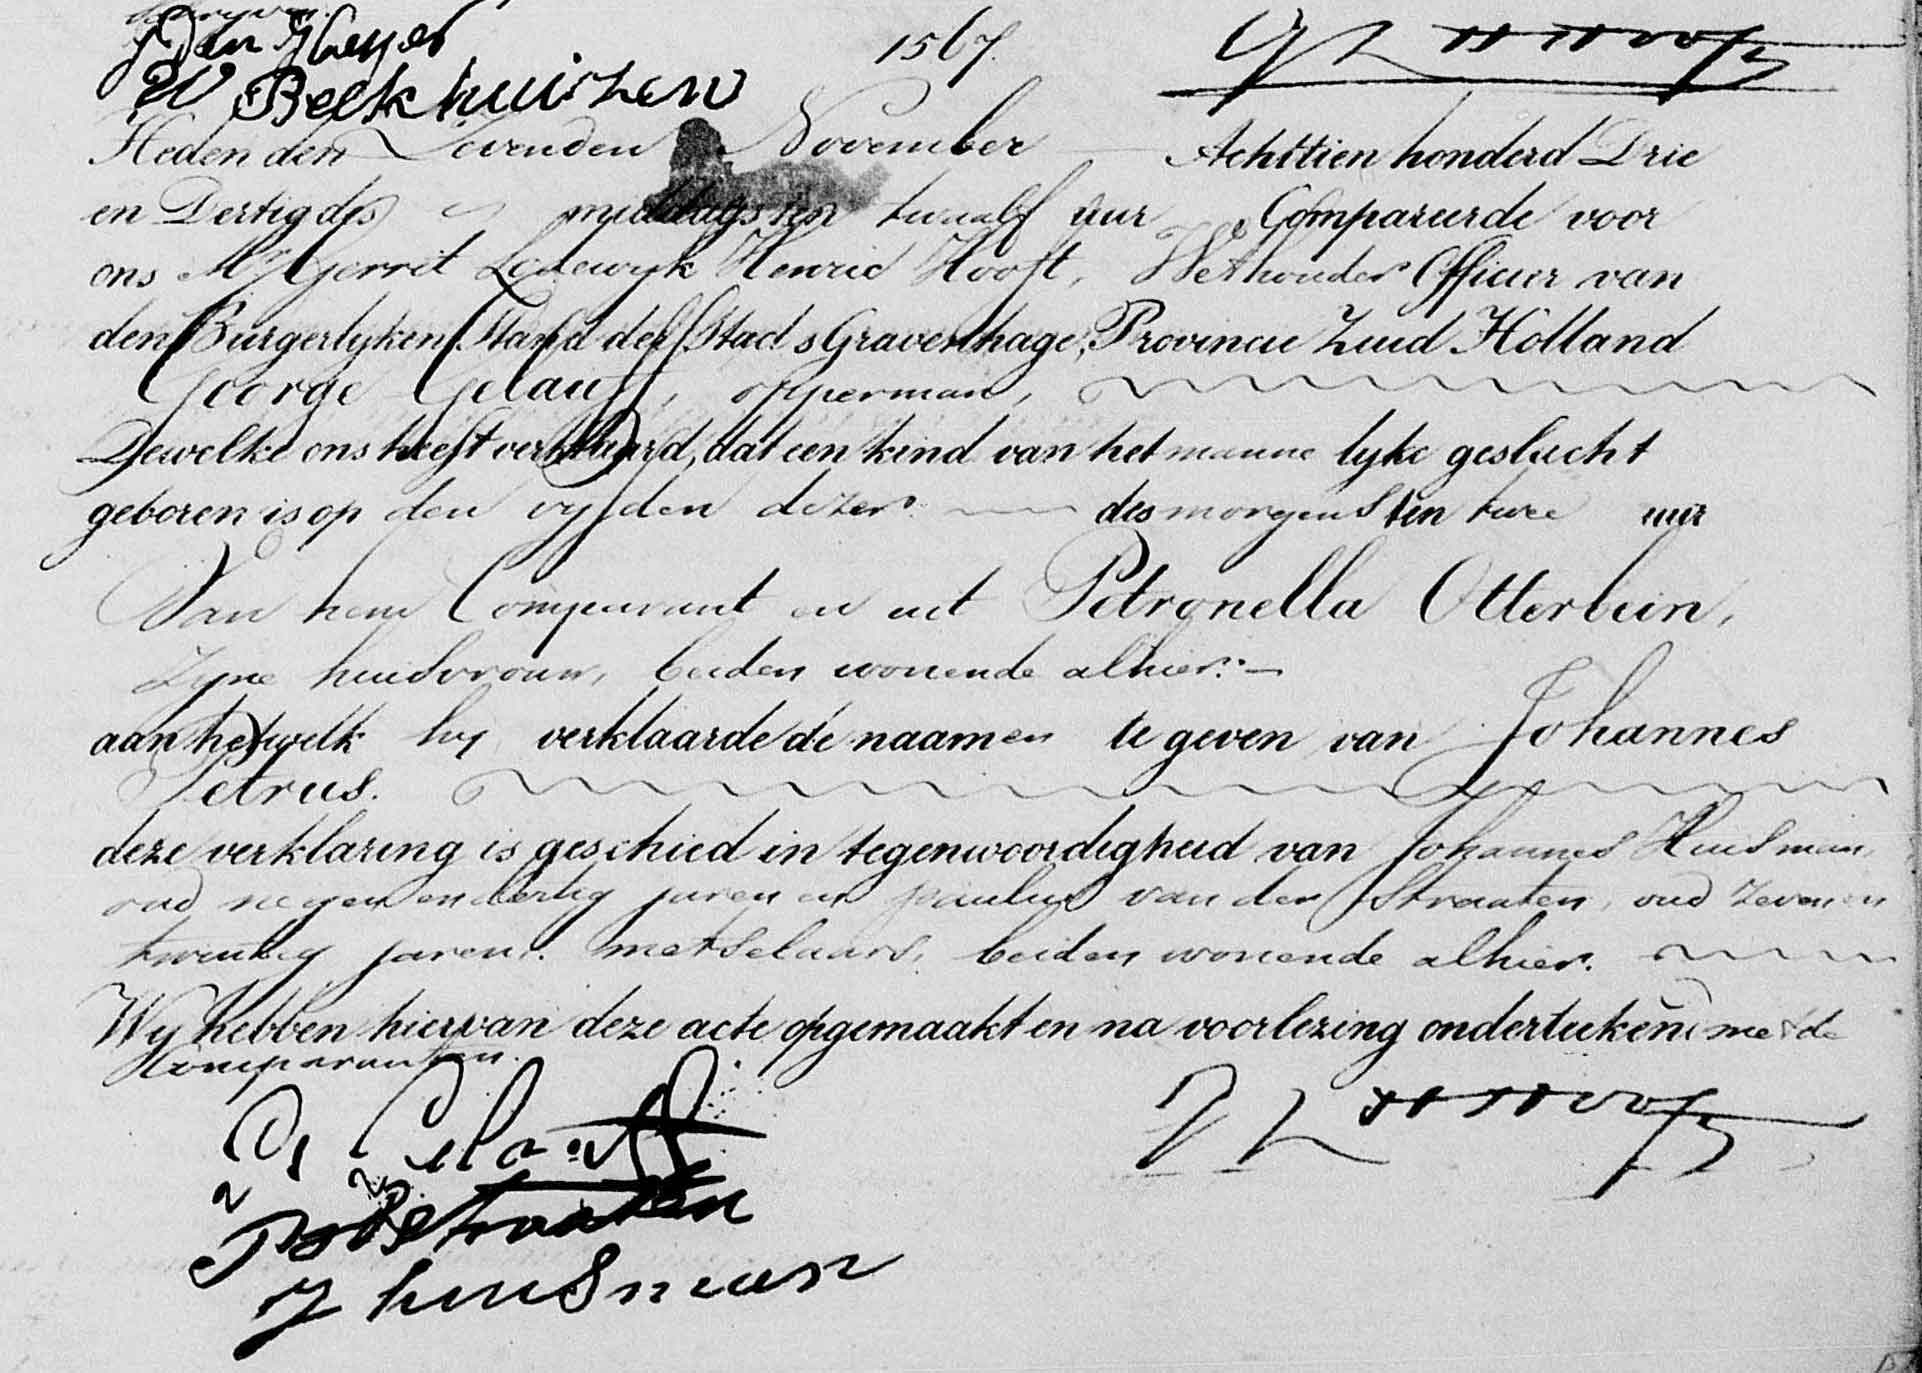 J Den Heyer
1567.
W Beekhuizen
Heden den Zevenden November Achttien honderd Drie
en Dertig des middags ten twaalf uur Compareerde voor
ons Mr Gerrit Lodewyk Henric Hooft, Wethouder Officier van
den Burgerlyken Stand der Stad s Gravenhage, Provincie Zuid Holland
George Gelauff, opperman,
Dewelke ons heeft verklaard, dat een kind van het manne lyke geslacht
geboren is op den vyfden dezer des morgens ten twee uur
Van hem Comparant en uit Petronella Otterbein,
zyne huisvrouw, beiden wonende alhier.
aan hetwelk hy verklaarde de naamen te geven van Johannes
Petrus.
deze verklaring is geschied in tegenwoordigheid van Johannes Huisman,
oud negen en dertig jaren en Paulus van der Straaten, oud zeven en
twintig jaren. metselaars, beiden wonende alhier.
Wy hebben hiervan deze acte opgemaakt en na voorlezing onderteekend met de
Comparanten.
G L H Hooft
G Gelauff
P v d Straaten
J huisman